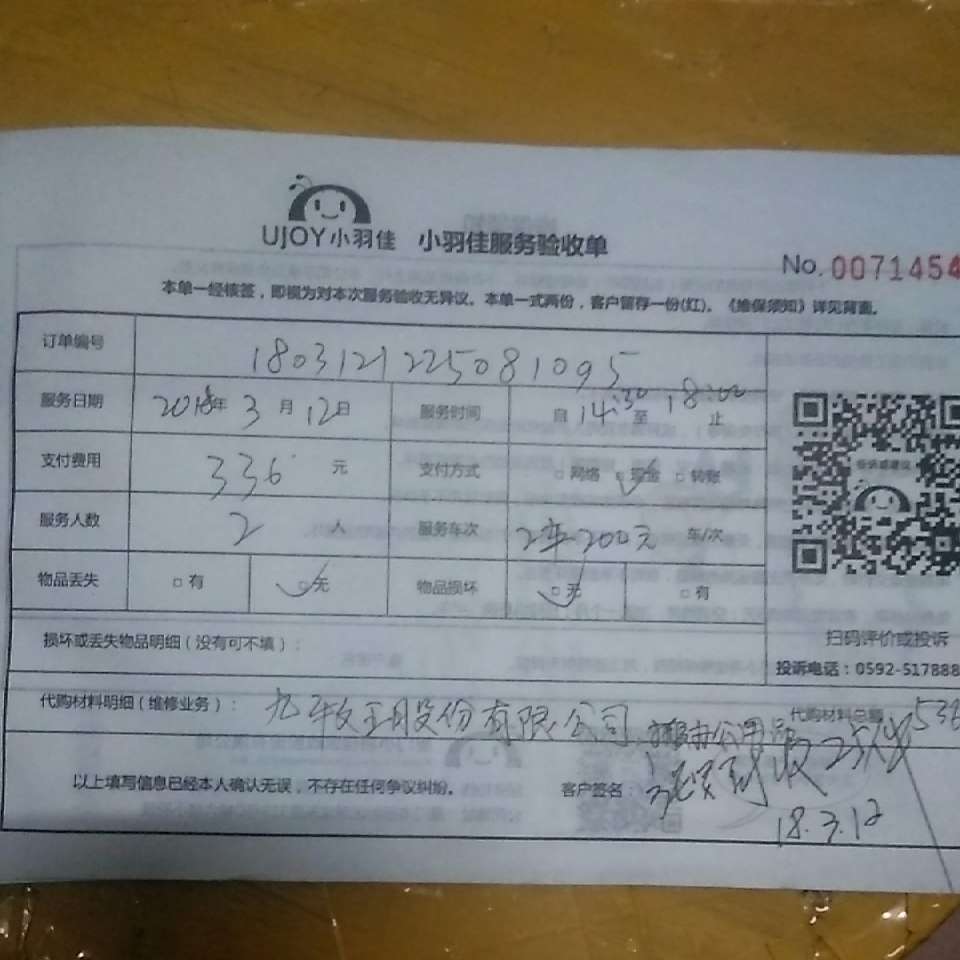 UJOY小羽佳 小羽佳服务验收单
No.0071454
本单一经核签，即视为对本次服务验收无异议。本单一式两份，客户留存一份(红)。《维保须知》详见背面。
订单编号 1803121225081095
服务日期 2018年3月12日 服务时间 自14:30至18:00止
支付费用 336元 支付方式 □网络 □现金 □转账
服务人数 2人 服务车次 2车200元 车/次
物品丢失 □有 □无 物品损坏 □无 □有
损坏或丢失物品明细（没有可不填）：
扫码评价或投诉
投诉电话：0592-517888
代购材料明细（维修业务）： 九牧王股份有限公司 代购材料总额 536
以上填写信息已经本人确认无误，不存在任何争议纠纷。 客户签名：
18.3.12